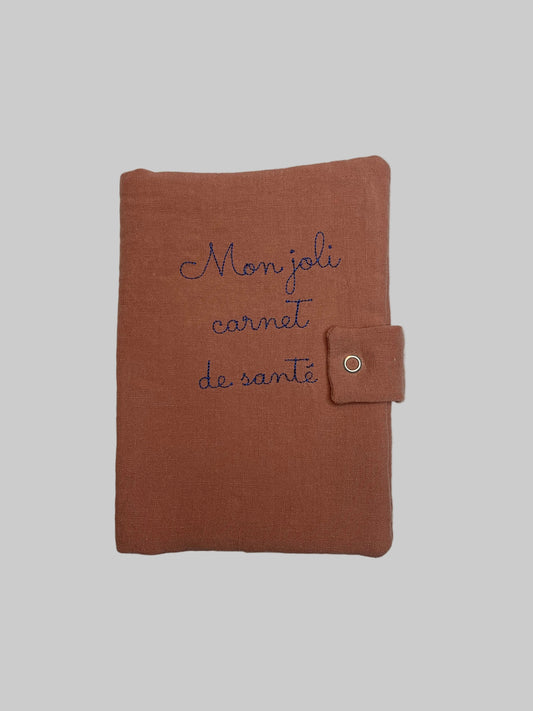 Mon joli
carnet
de santé